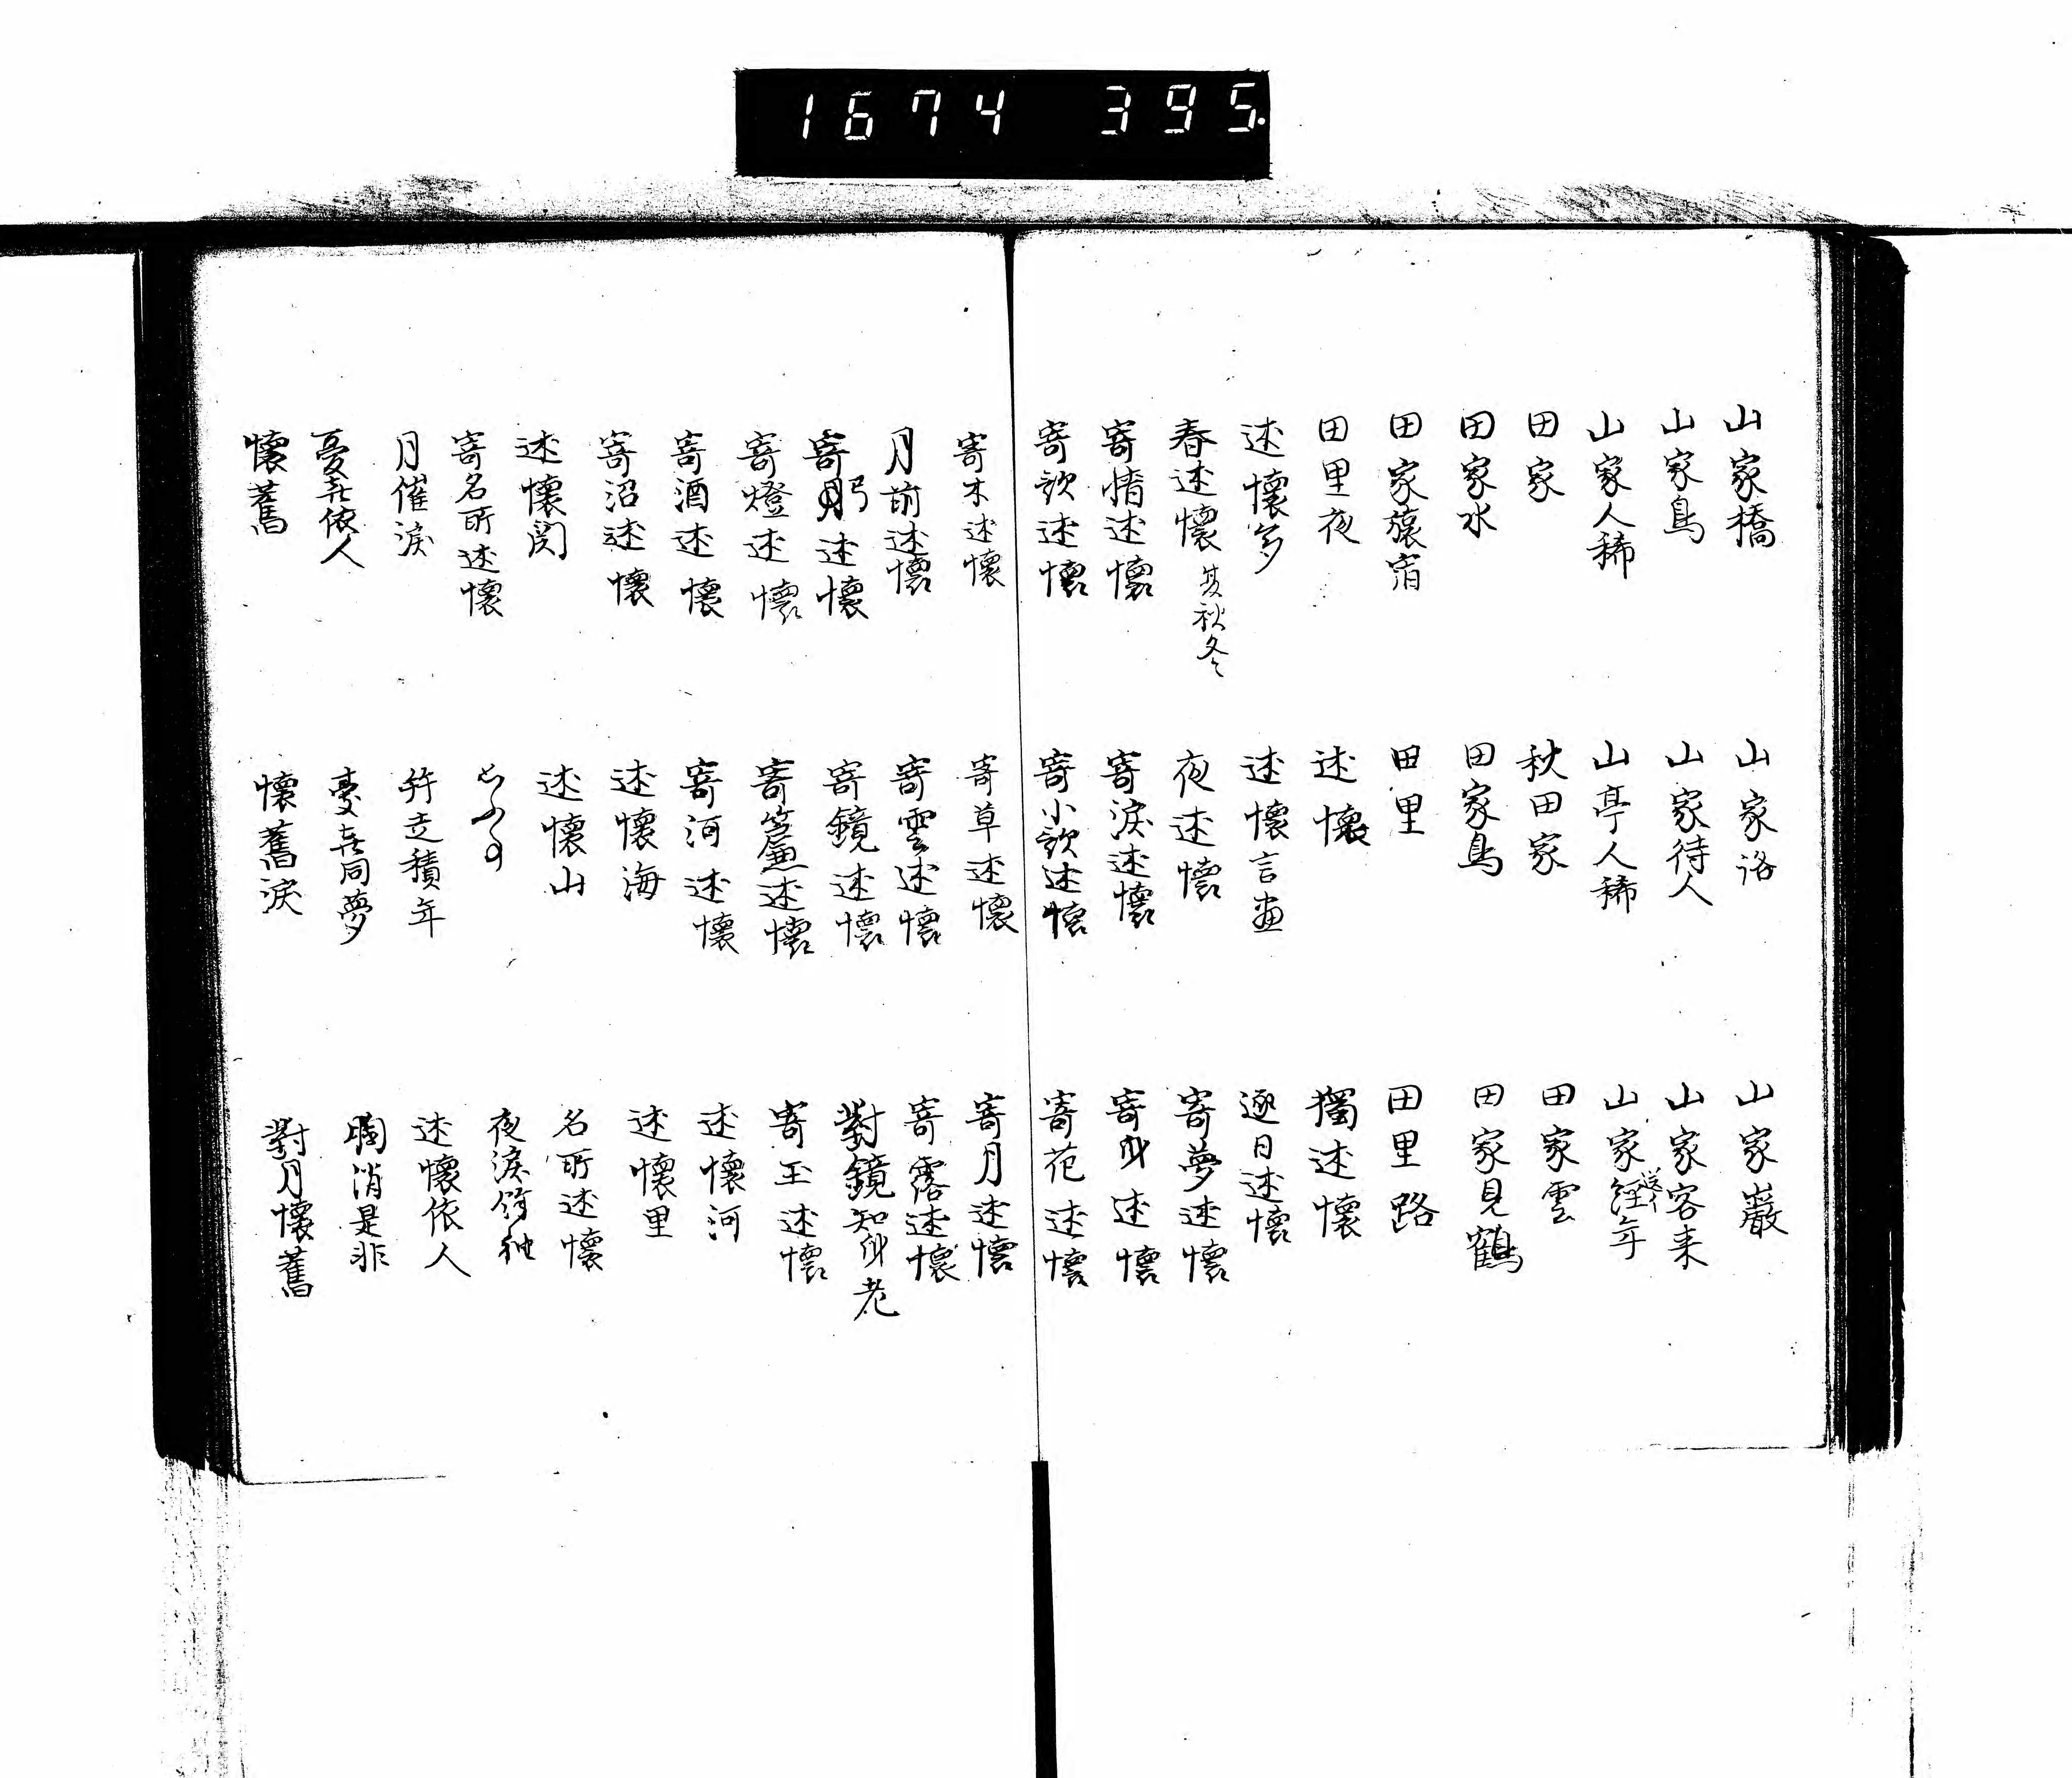 1674 395.
山家橋
山家鳥
山家人稀
田家
田家水
田家旅宿
田里夜
述懐多
春述懐 夏秋冬
寄情述懐
寄歌述懐
山家
山家待人
山亭人稀
秋田家
田家鳥
田里
述懐
述懐言
夜述懐
寄涙述懐
寄小歌述懐
山家巖
山家客来
山家経年
田家雲
田家見鶴
田里路
獨述懐
逐日述懐
寄夢述懐
寄身述懐
寄花述懐
寄木述懐
月前述懐
寄弓述懐
寄燈述懐
寄酒述懐
寄沼述懐
述懐関
寄名所述懐
月催涙
憂喜依人
懐舊
寄草述懐
寄雲述懐
寄鏡述懐
寄簾述懐
寄河述懐
述懐海
述懐山
述積年
憂喜同夢
懐舊涙
寄月述懐
寄露述懐
對鏡知身老
寄玉述懐
述懐河
述懐里
名所述懐
夜涙袖
述懐依人
消是非
對月懐舊